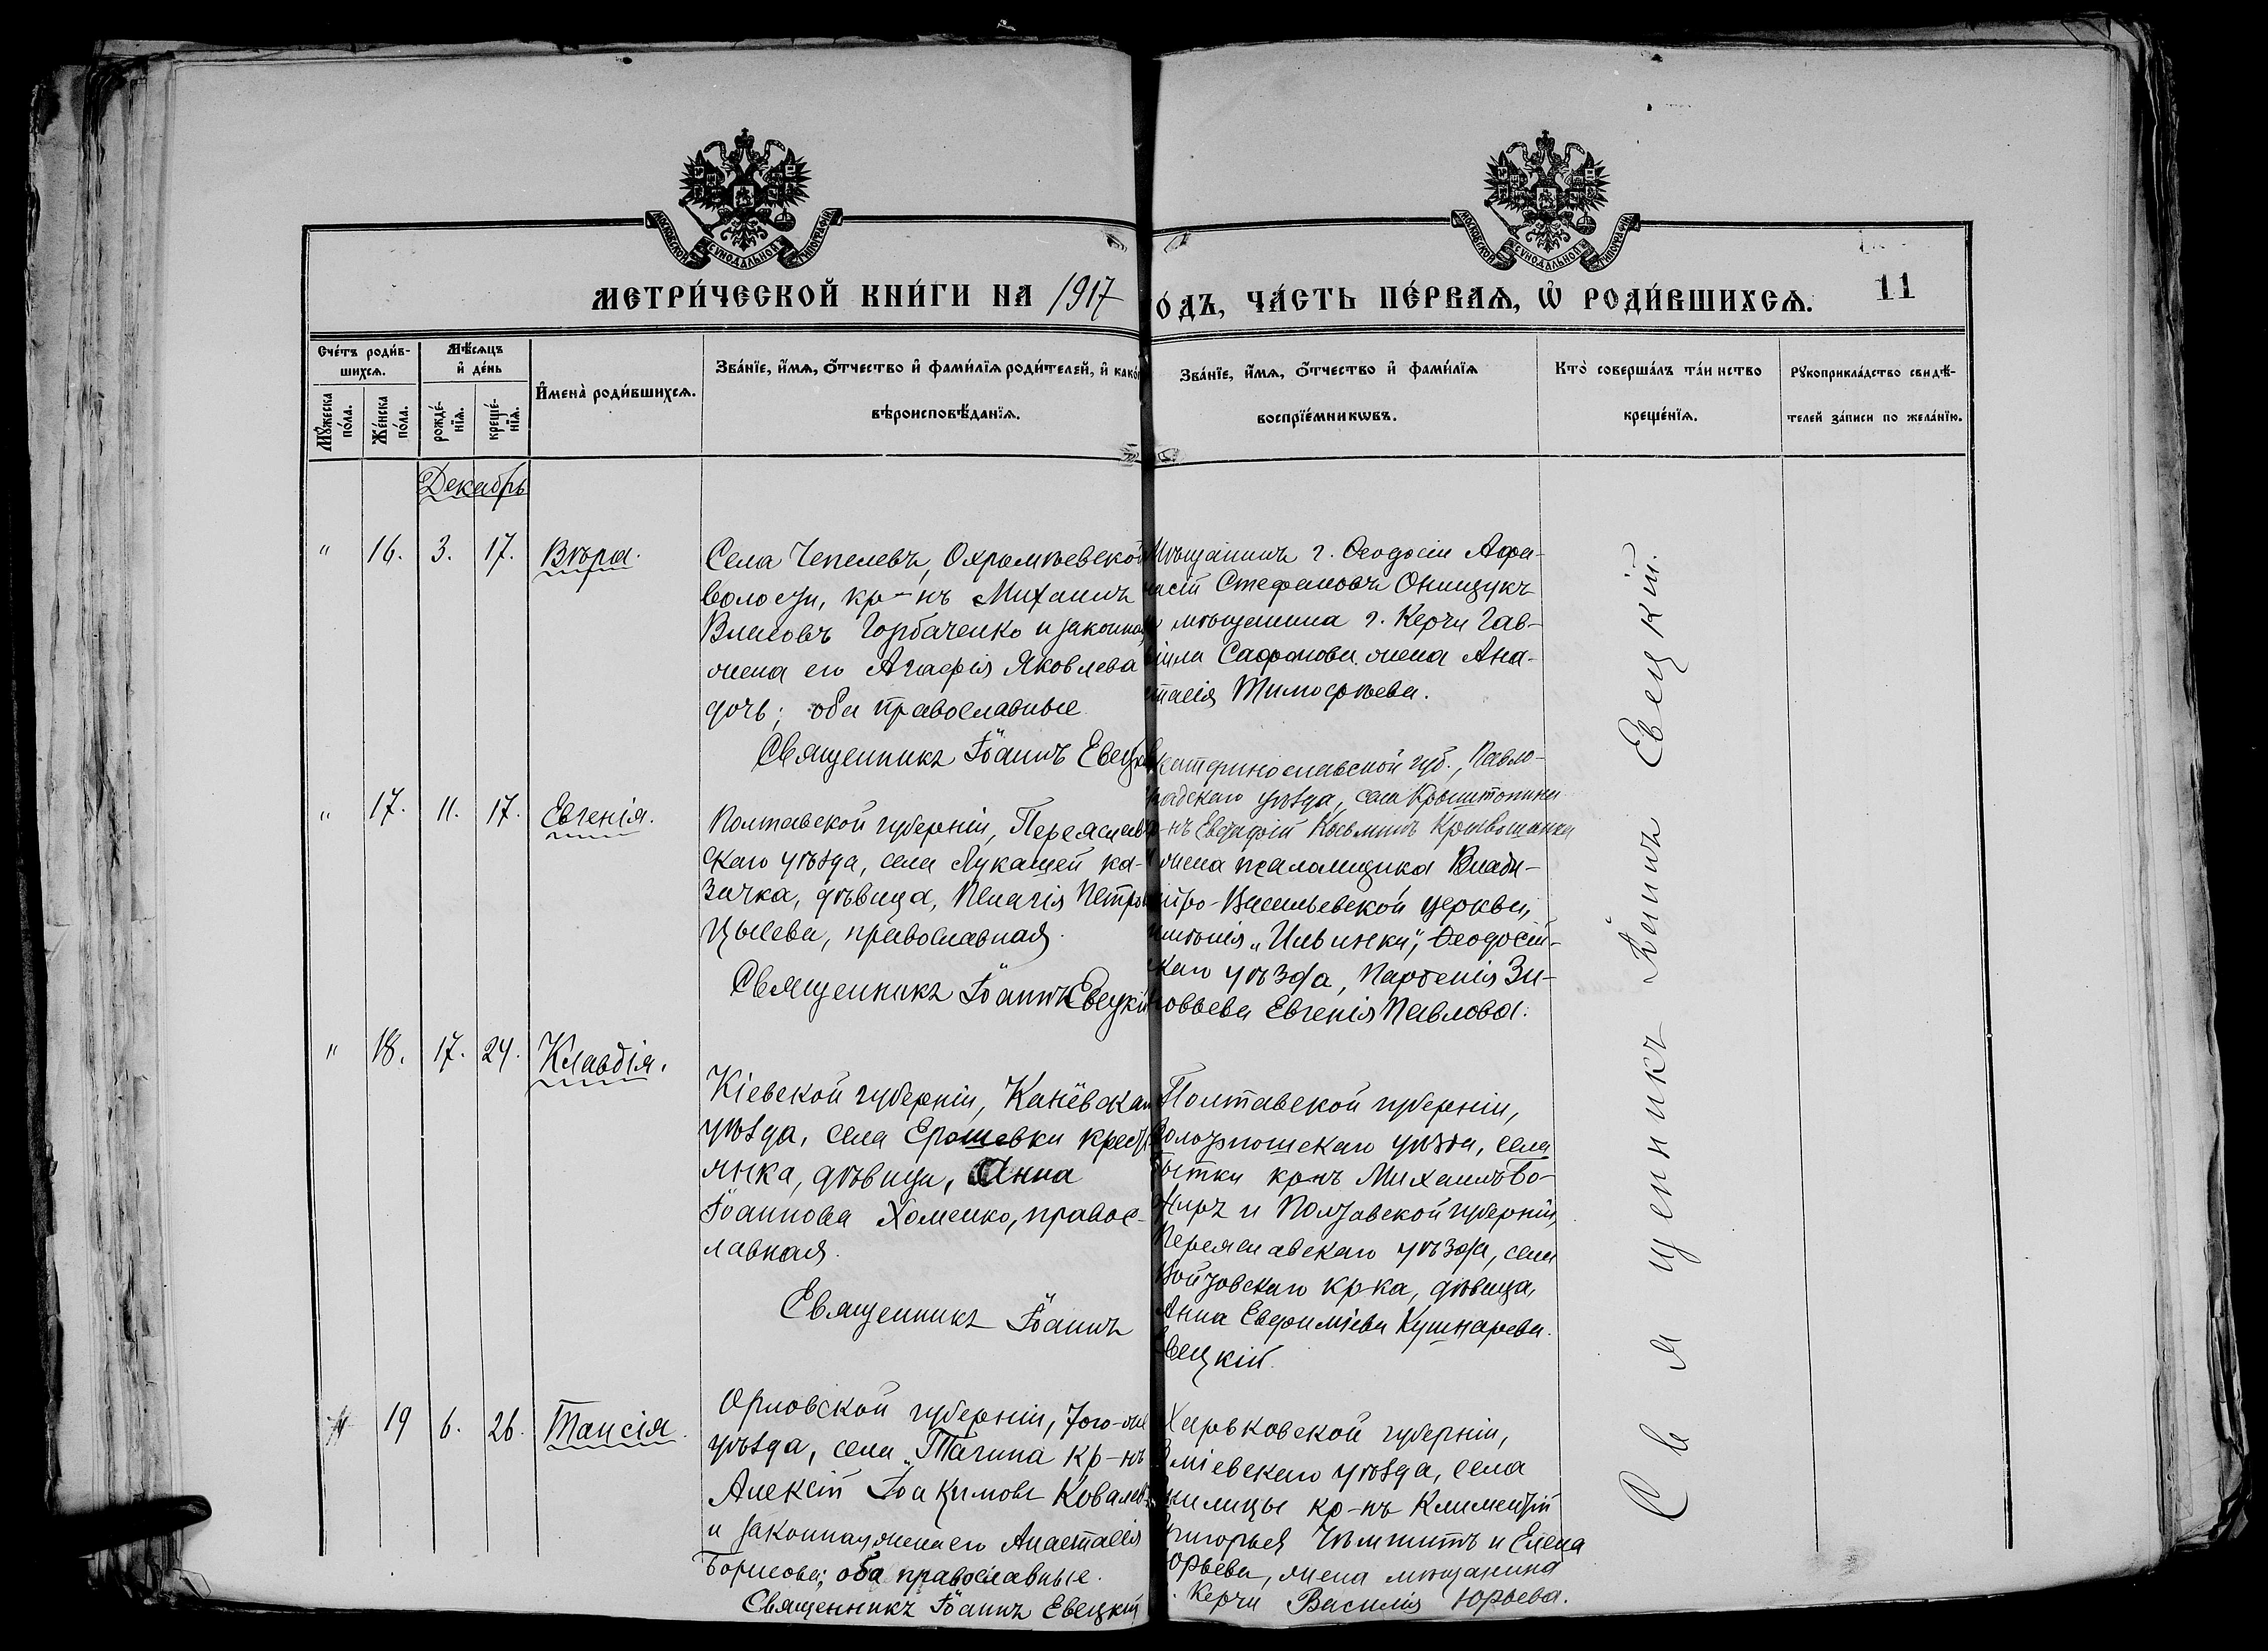 МОСКОВСКОЙ СѴНОДАЛЬНОЙ ТИПОГРАФІИ
МОСКОВСКОЙ СѴНОДАЛЬНОЙ ТИПОГРАФІИ
МЕТРИ́ЧЕСКОЙ КНИ́ГИ НА 1917
О́ДЪ, ЧА́СТЬ ПЕ́РВАѦ, Ѡ҆ РОДИ́ВШИХСѦ.
11
Сче́тъ роди́в-
шихсѧ.
Мꙋ́жеска по́ла.
Же́нска по́ла.
Мѣ́сѧцъ
и҆ де́нь
рожде́-
нїѧ.
креще́-
нїѧ.
И҆мена̀ роди́вшихсѧ.
Зва́нїе, и҆́мѧ, ѻ҆́тчество и҆ фами́лїѧ роди́телей, и҆ како́г
вѣроисповѣ́данїѧ.
Зва́нїе, и҆́мѧ, ѻ҆́тчество и҆ фами́лїѧ
воспрїе́мникѡвъ.
Кто̀ соверша́лъ та́инство
креще́нїѧ.
Рꙋкоприкла́дство свидѣ́-
телей за́писи по жела́нїю.
Декабрь
" 16. 3. 17. Вѣра.
Села Чепелевъ, Охрамѣевской
волости, кр-нъ Михаилъ
Власовъ Горбаченко и законная
жена его Агафія Яковлева
дочь; оба православные
Священникъ Іоаннъ Евецкі
Мѣщанинъ г. Ѳеодосіи Афа-
насій Стефановъ Онищукъ
и мѣщанина г. Керчи Гав-
ріила Сафонова жена Ана-
стасія Тимофѣева.
" 17. 11. 17. Евгенія.
Полтавской губерніи, Переяслав
скаго уѣзда, села Лукашей ка-
зачка, дѣвица, Пелагія Петров
православная.
Священникъ Іоаннъ Евецкій
катеринославской губ., Павло-
градскаго уѣзда, села
кр-нъ Евстафій Косьминъ
и жена псаломщика Влади-
міро-Васильевской церкви,
имѣнія „Ильинки", Ѳеодосій-
скаго уѣзда, Парѳенія Зи-
новьева Евгенія Павлова.
" 18. 17. 24. Клавдія.
Кіевской губерніи, Канёвскаго
уѣзда, села Ерошевки крест
янка, дѣвица, Анна
Іоаннова Хоменко, правос-
лавная.
Священникъ Іоаннъ
Полтавской губерніи,
Золотоношскаго уѣзда, села
кр-нъ Михаилъ Бо-
и Полтавской губерніи,
Переяславскаго уѣзда, села
Войтовскаго кр-ка, дѣвица,
Анна Евфиміева Кушнарева.
Евецкій.
" 19 6. 26. Таисія.
Орловской губерніи, того-же
уѣзда, села Тагина кр-нъ
Алексій Іоакимовъ Ковалев
и законная жена его Анастасія
Борисова; оба православные.
Священникъ Іоаннъ Евецкій
Харьковской губерніи,
Зміевскаго уѣзда, села
кр-нъ Климентій
Григорьев и Елена
Юрьева, жена мѣщанина
г. Керчи Василія Юрьева.
Священникъ Іоаннъ Евецкій.